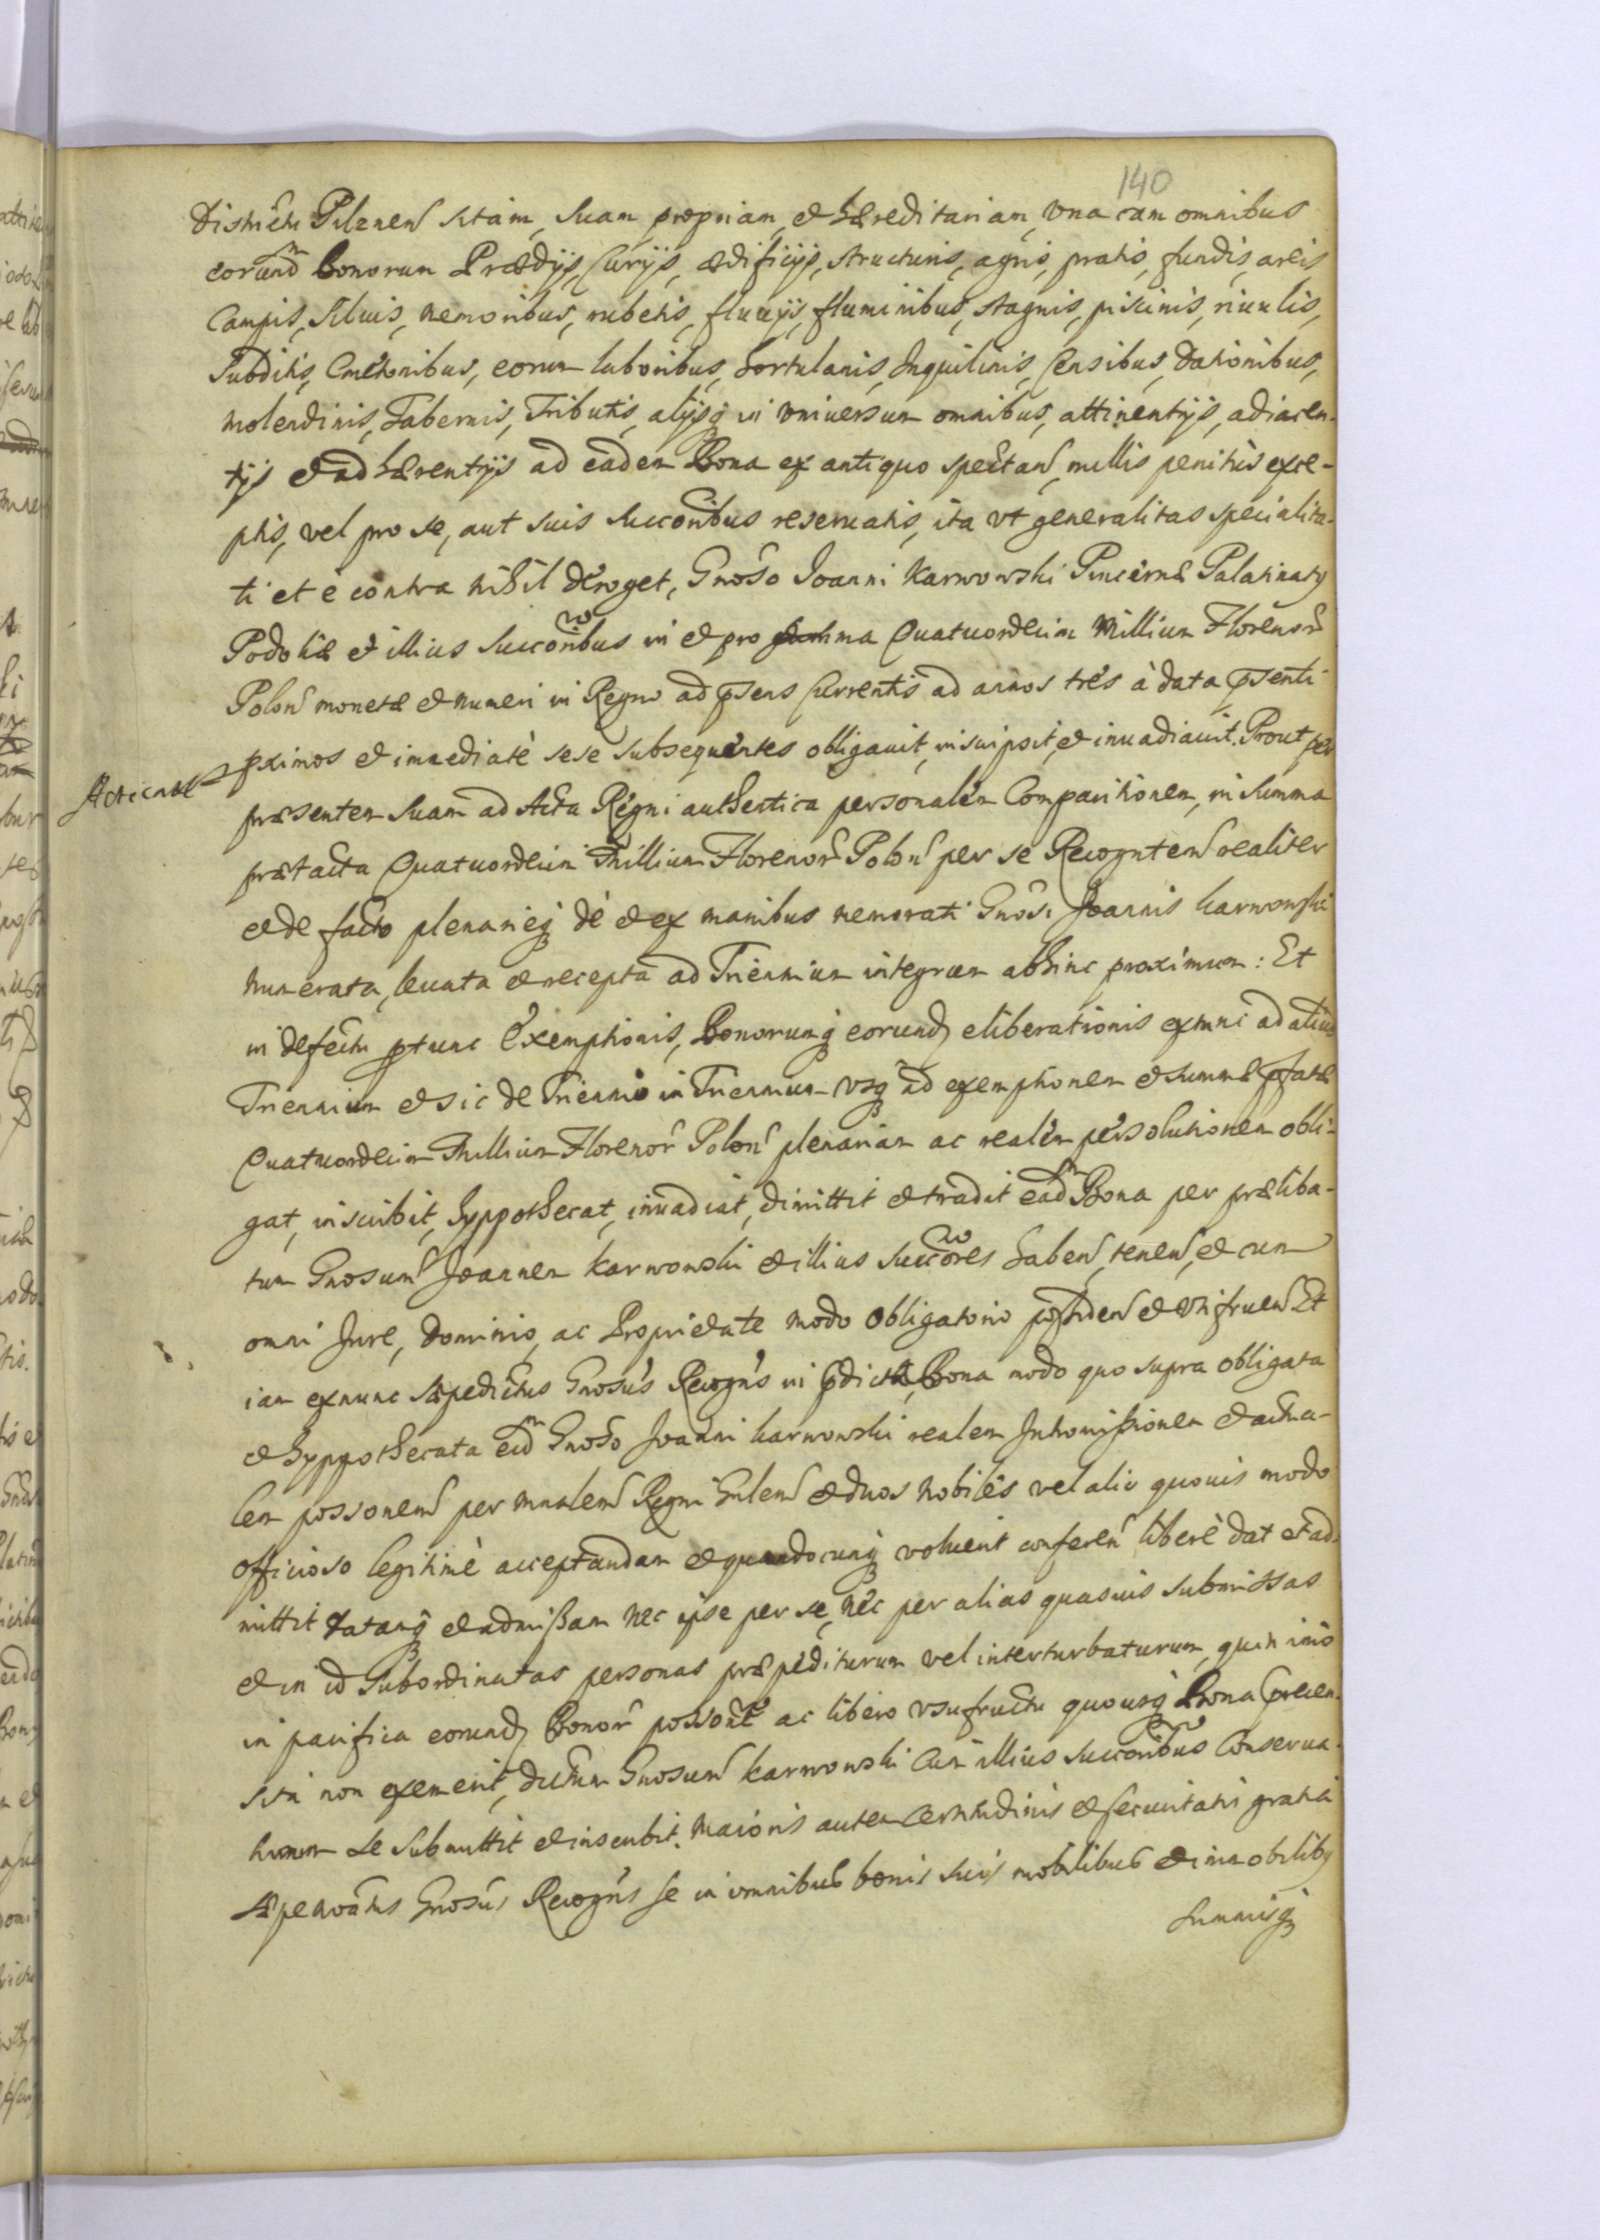 140
Districtu Pilznen sitam, suam propriam, et hæreditariam, vna cum omnibus
eorundm bonorum Prædijs, Curijs, ædificijs, structuris, agris, pratis, fundis, areis
Campis, siluis, nemoribus, rubetis, fluuijs, fluminibus, stagnis, piscinis, riuulis,
Subditis, Cmetonibus, eorum laboribus, hortulanis, Inquilinis, Censibus, dationibus,
molendinis, Tabernis, Tributis, alijsq in vniuersum omnibus, attinentijs, adiacen-
tijs et adhærentijs ad eadem Bona ex antiquo spectan, nullis penitùs exce-
ptis, vel pro se, aut suis succoribus reseruatis, ita vt generalitas specialita-
ti et è contra nihil deroget, Gnoso Joanni Karwowski Pincernæ Palatinatg
Podoliæ et illius succoribus in et pro summa Quatuordecim Millium Florenor
Polon monetæ et numeri in Regno ad psens Currentis ad annos tres à data psenti
pximos et immediatè sese subsequentes obligauit, inscripsit, et inuadiauit. Prout per
Acticatæ
præsentem suam ad Acta Regni authentica personalem Comparitionem, in summa
prætacta Quatuordecim Millium Florenor Polon per se Recognten realiter
et de facto plenarieq de et ex manibus memorati Gnosi Joannis Karwowski
numerata, leuata et recepta ad Triennium integrum abhinc proximum: Et
in defectu ptunc Exemptionis, Bonorumq eorund eliberationis extunc ad aliud
Triennium et sic de Triennio in Triennium vsq ad exemptionem et summæ pfatæ
Quatuordecim Millium Florenor Polon plenariam ac realem persolutionem obli-
gat, inscribit, hyppothecat, inuadiat, dimittit et tradit eadm Bona per præliba-
tum Gnosum Joannem Karwowski et illius succores haben, tenen, et cum
omni Jure, dominio, ac Proprietate modo obligatorio possiden et vtifruen Et
iam exnunc sæpedictus Gnosus Recogns in pdicta Bona modo quo supra obligata
et hyppothecata eidm Gnoso Joanni Karwowski realem Intromissionem et actua-
lem possonem per mnalem Regni Gnlem et duos nobiles vel alio quouis modo
officioso legitimè acceptandam et quandocunq voluerit conferen liberè dat et ad-
mittit datamq et admissam nec ipse per se, nec per alias quasuis submissas
et in id subordinatas personas præpediturum vel interturbaturum, quin imò
in pacifica eorund Bonor possone ac libero vsufructu quousq Bona precen-
sita non exemerit, dictum Gnosum Karwowski cum illius succoribus Conserua-
turum se submittit et inscribit. Maioris autem certitudinis et securitatis gratia
sæpenoatus Gnosus Recogns se in omnibus bonis suis mobilibus et immobilibg
summisq